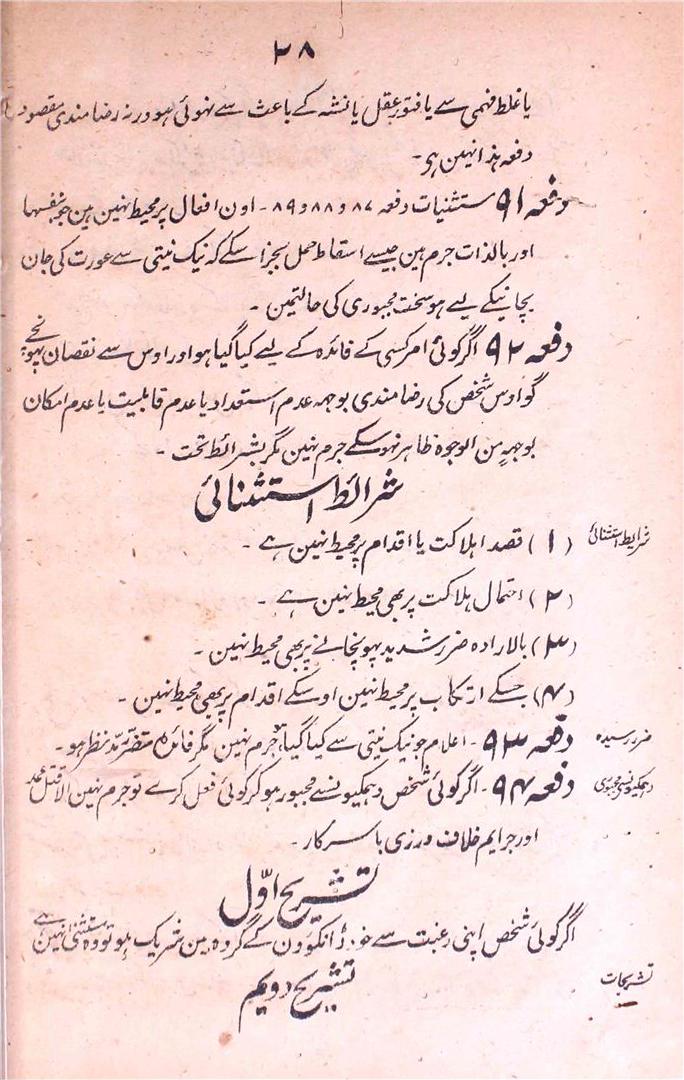 ۲۸
یا غلط فہمی سے یا فتور عقل یا نشہ کے باعث سے نہوئی ہو ورنہ رضامندی مقصود
دفعہ ہذا نہین ہی۔
دفعہ ۹۱ مستثنیات دفعہ ۸۷ و ۸۸ و ۸۹۔ اون افعال پر محیط نہین ہین جو بنفسہا
اور بالذات جرم ہین جیسے اسقاط حمل بجز اسکے کہ نیک نیتی سے عورت کی جان
بچانیکے لیے ہو سخت مجبوری کی حالتمین ۔
دفعہ ۹۲ اگر کوئی امر کسی کے فائدہ کے لیے کیا گیا ہو اور اوس سے نقصان پہونچے
گو اوس شخص کی رضامندی بوجہ عدم استعداد یا عدم قابلیت یا عدم امکان
بوجہٍ من الوجوہ ظاہر نہوسکے جرم نہین مگر بشرائط تحت ۔
شرائط استثنائی
شرایط استثنائی
(۱) قصد ہلاکت یا اقدام پر محیط نہین ہے ۔
(۲) احتمال ہلاکت پر بھی محیط نہین ہے ۔
(۳) بالارادہ ضرر شدید پہونچانے پر بھی محیط نہین ۔
(۴) جسکے ارتکاب پر محیط نہین اوسکے اقدام پر بھی محیط نہین ۔
ضرر رسیدہ
دفعہ ۹۳ ۔ اعلام جو نیک نیتی سے کیا گیا ہو جرم نہین مگر فائدہ متضرر مد نظر ہو ۔
دہمکیونسے مجبوری
دفعہ ۹۴ ۔ اگر کوئی شخص دہمکیونسے مجبور ہو کر کوئی فعل کرے تو جرم نہین الا قتل عمد
اور جرایم خلاف ورزی با سرکار ۔
تشریح اوّل
اگر کوئی شخص اپنی رغبت سے خود ڈانکوؤن کے گروہ مین شریک ہو تو وہ مستثنی نہین ہے
تشریحات
تشریح دویم